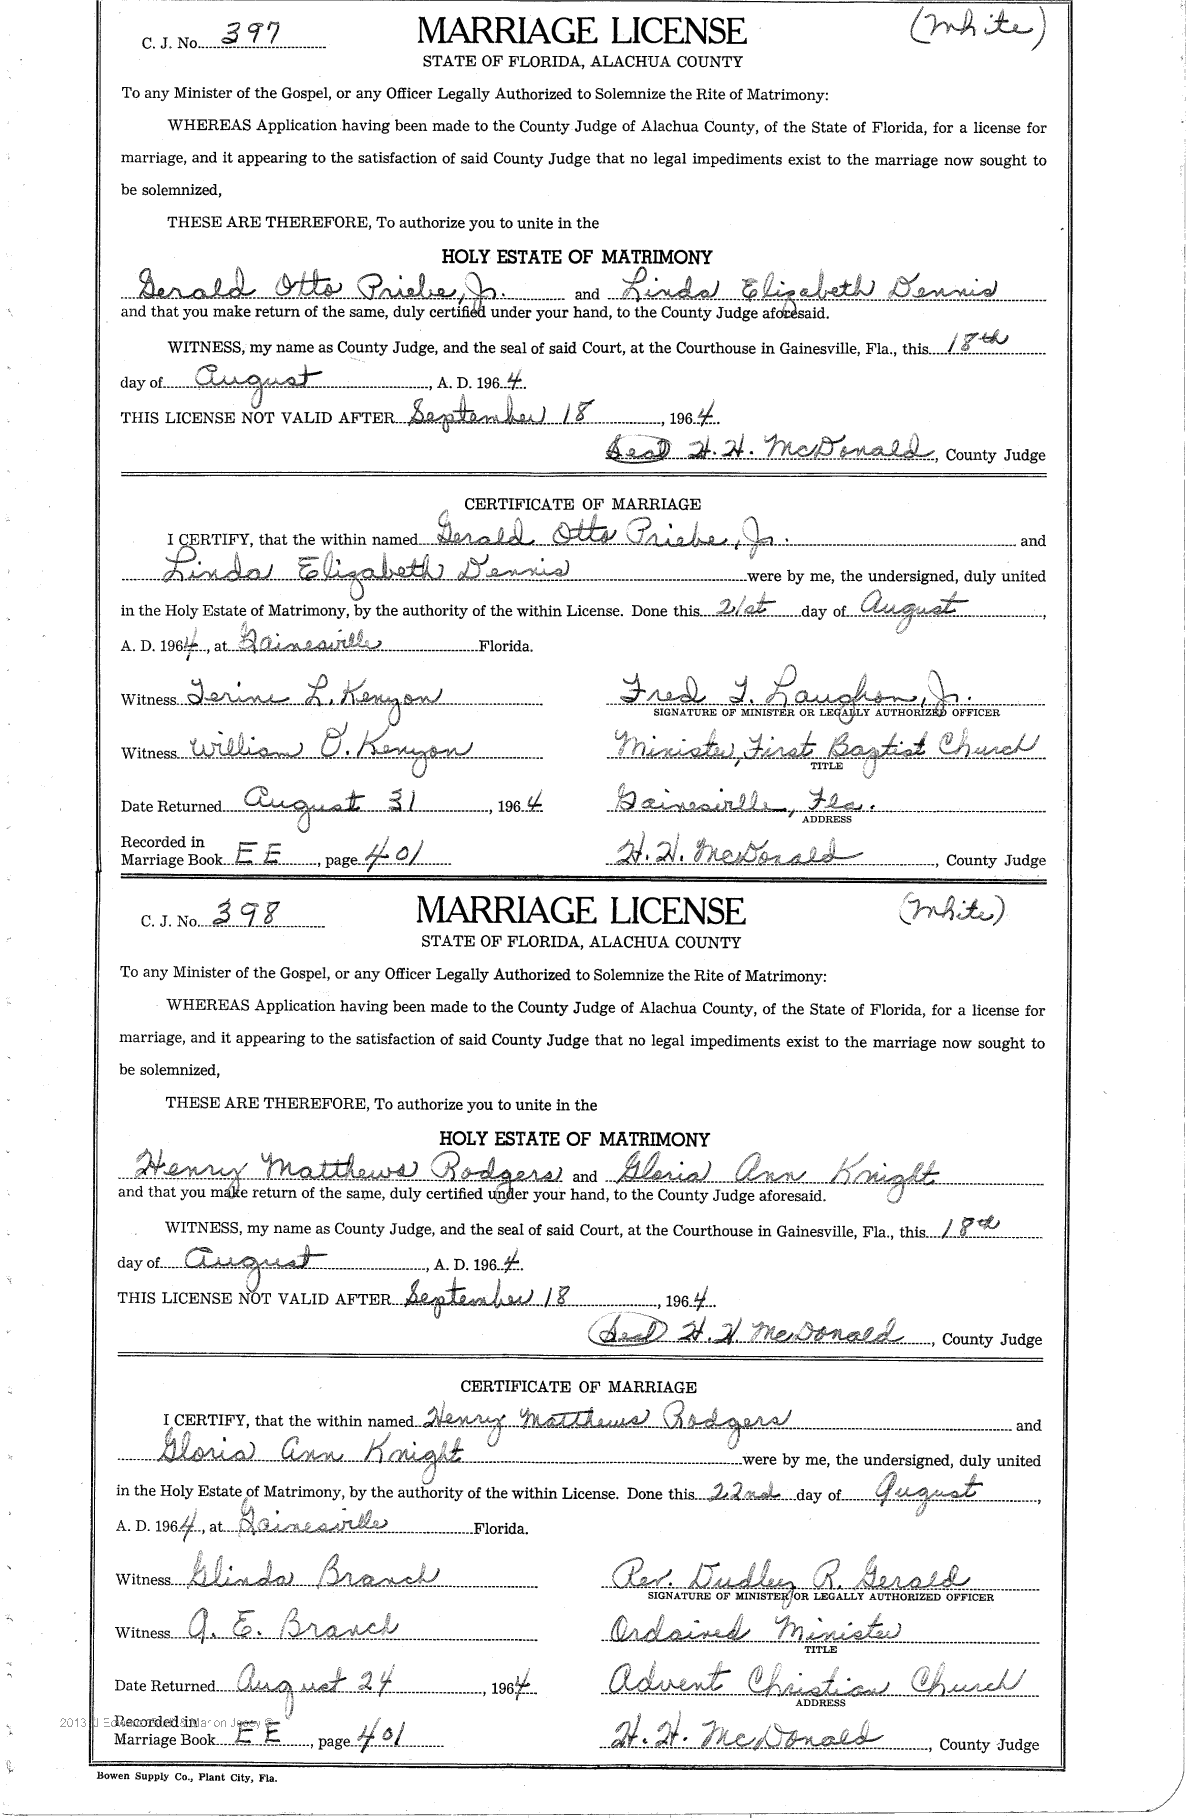 C. J. No. 397 MARRIAGE LICENSE (White)
STATE OF FLORIDA, ALACHUA COUNTY
To any Minister of the Gospel, or any Officer Legally Authorized to Solemnize the Rite of Matrimony:
WHEREAS Application having been made to the County Judge of Alachua County, of the State of Florida, for a license for
marriage, and it appearing to the satisfaction of said County Judge that no legal impediments exist to the marriage now sought to
be solemnized,
THESE ARE THEREFORE, To authorize you to unite in the
HOLY ESTATE OF MATRIMONY
Gerald Otto Priebe, Jr. and Linda Elizabeth Dennis
and that you make return of the same, duly certified under your hand, to the County Judge aforesaid.
WITNESS, my name as County Judge, and the seal of said Court, at the Courthouse in Gainesville, Fla., this 18th
day of August, A. D. 1964.
THIS LICENSE NOT VALID AFTER September 18, 1964.
Seal H. H. McDonald, County Judge
CERTIFICATE OF MARRIAGE
I CERTIFY, that the within named Gerald Otto Priebe, Jr. and
Linda Elizabeth Dennis were by me, the undersigned, duly united
in the Holy Estate of Matrimony, by the authority of the within License. Done this 21st day of August,
A. D. 1964, at Gainesville Florida.
Witness Terine L. Kenyon Fred T. Laughon, Jr.
SIGNATURE OF MINISTER OR LEGALLY AUTHORIZED OFFICER
Witness William O. Kenyon Minister, First Baptist Church
TITLE
Date Returned August 31, 1964 Gainesville, Fla.
ADDRESS
Recorded in
Marriage Book EE, page 401 H. H. McDonald, County Judge
C. J. No. 398 MARRIAGE LICENSE (White)
STATE OF FLORIDA, ALACHUA COUNTY
To any Minister of the Gospel, or any Officer Legally Authorized to Solemnize the Rite of Matrimony:
WHEREAS Application having been made to the County Judge of Alachua County, of the State of Florida, for a license for
marriage, and it appearing to the satisfaction of said County Judge that no legal impediments exist to the marriage now sought to
be solemnized,
THESE ARE THEREFORE, To authorize you to unite in the
HOLY ESTATE OF MATRIMONY
Henry Matthews Rodgers and Gloria Ann Knight
and that you make return of the same, duly certified under your hand, to the County Judge aforesaid.
WITNESS, my name as County Judge, and the seal of said Court, at the Courthouse in Gainesville, Fla., this 18th
day of August, A. D. 1964.
THIS LICENSE NOT VALID AFTER September 18, 1964.
Seal H. H. McDonald, County Judge
CERTIFICATE OF MARRIAGE
I CERTIFY, that the within named Henry Matthews Rodgers and
Gloria Ann Knight were by me, the undersigned, duly united
in the Holy Estate of Matrimony, by the authority of the within License. Done this 22nd day of August,
A. D. 1964, at Gainesville Florida.
Witness Glinda Branch Rev. Dudley R. Gerald
SIGNATURE OF MINISTER OR LEGALLY AUTHORIZED OFFICER
Witness A. E. Branch Ordained Minister
TITLE
Date Returned August 24, 1964 Advent Christian Church
ADDRESS
2013
Recorded in
Marriage Book EE, page 401 H. H. McDonald, County Judge
Bowen Supply Co., Plant City, Fla.